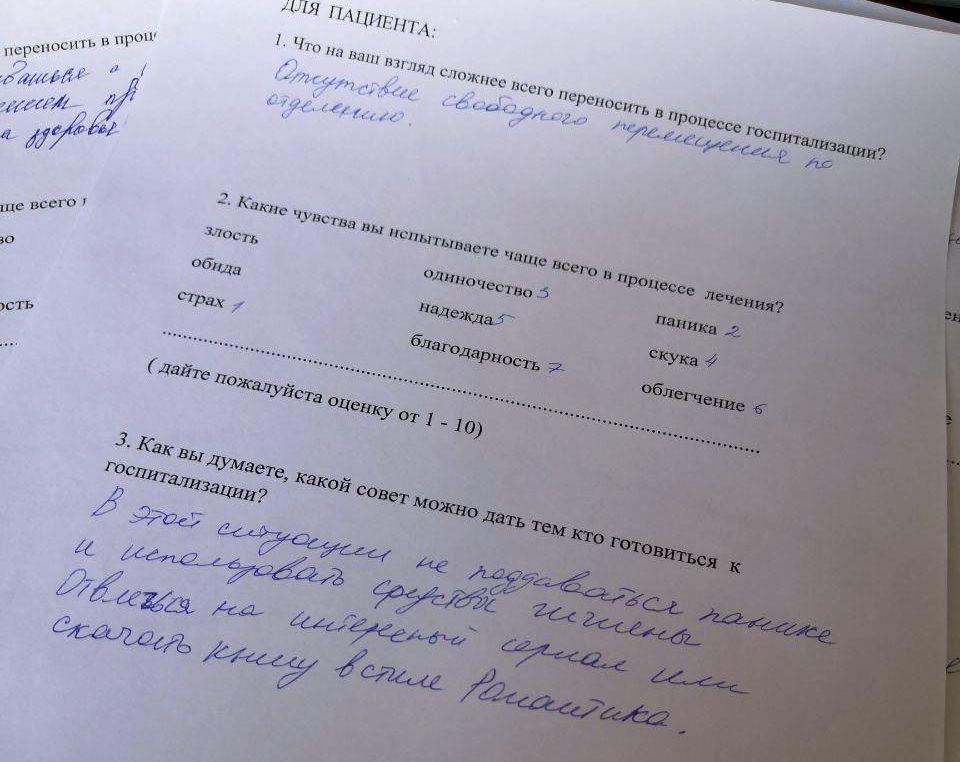 переносить в проц
здоровья
ще всего
во
ость
ДЛЯ ПАЦИЕНТА:
1. Что на ваш взгляд сложнее всего переносить в процессе госпитализации?
Отсутствие свободного перемещения по
отделению.
2. Какие чувства вы испытываете чаще всего в процессе лечения?
злость
обида
страх 1
одиночество 3
надежда 5
благодарность 7
паника 2
скука 4
облегчение 6
( дайте пожалуйста оценку от 1 - 10)
3. Как вы думаете, какой совет можно дать тем кто готовиться к
госпитализации?
В этой ситуации не поддаваться панике
и использовать средствы гигиены
Отвлечься на интересный сериал или
скачать книгу в стиле Романтика.